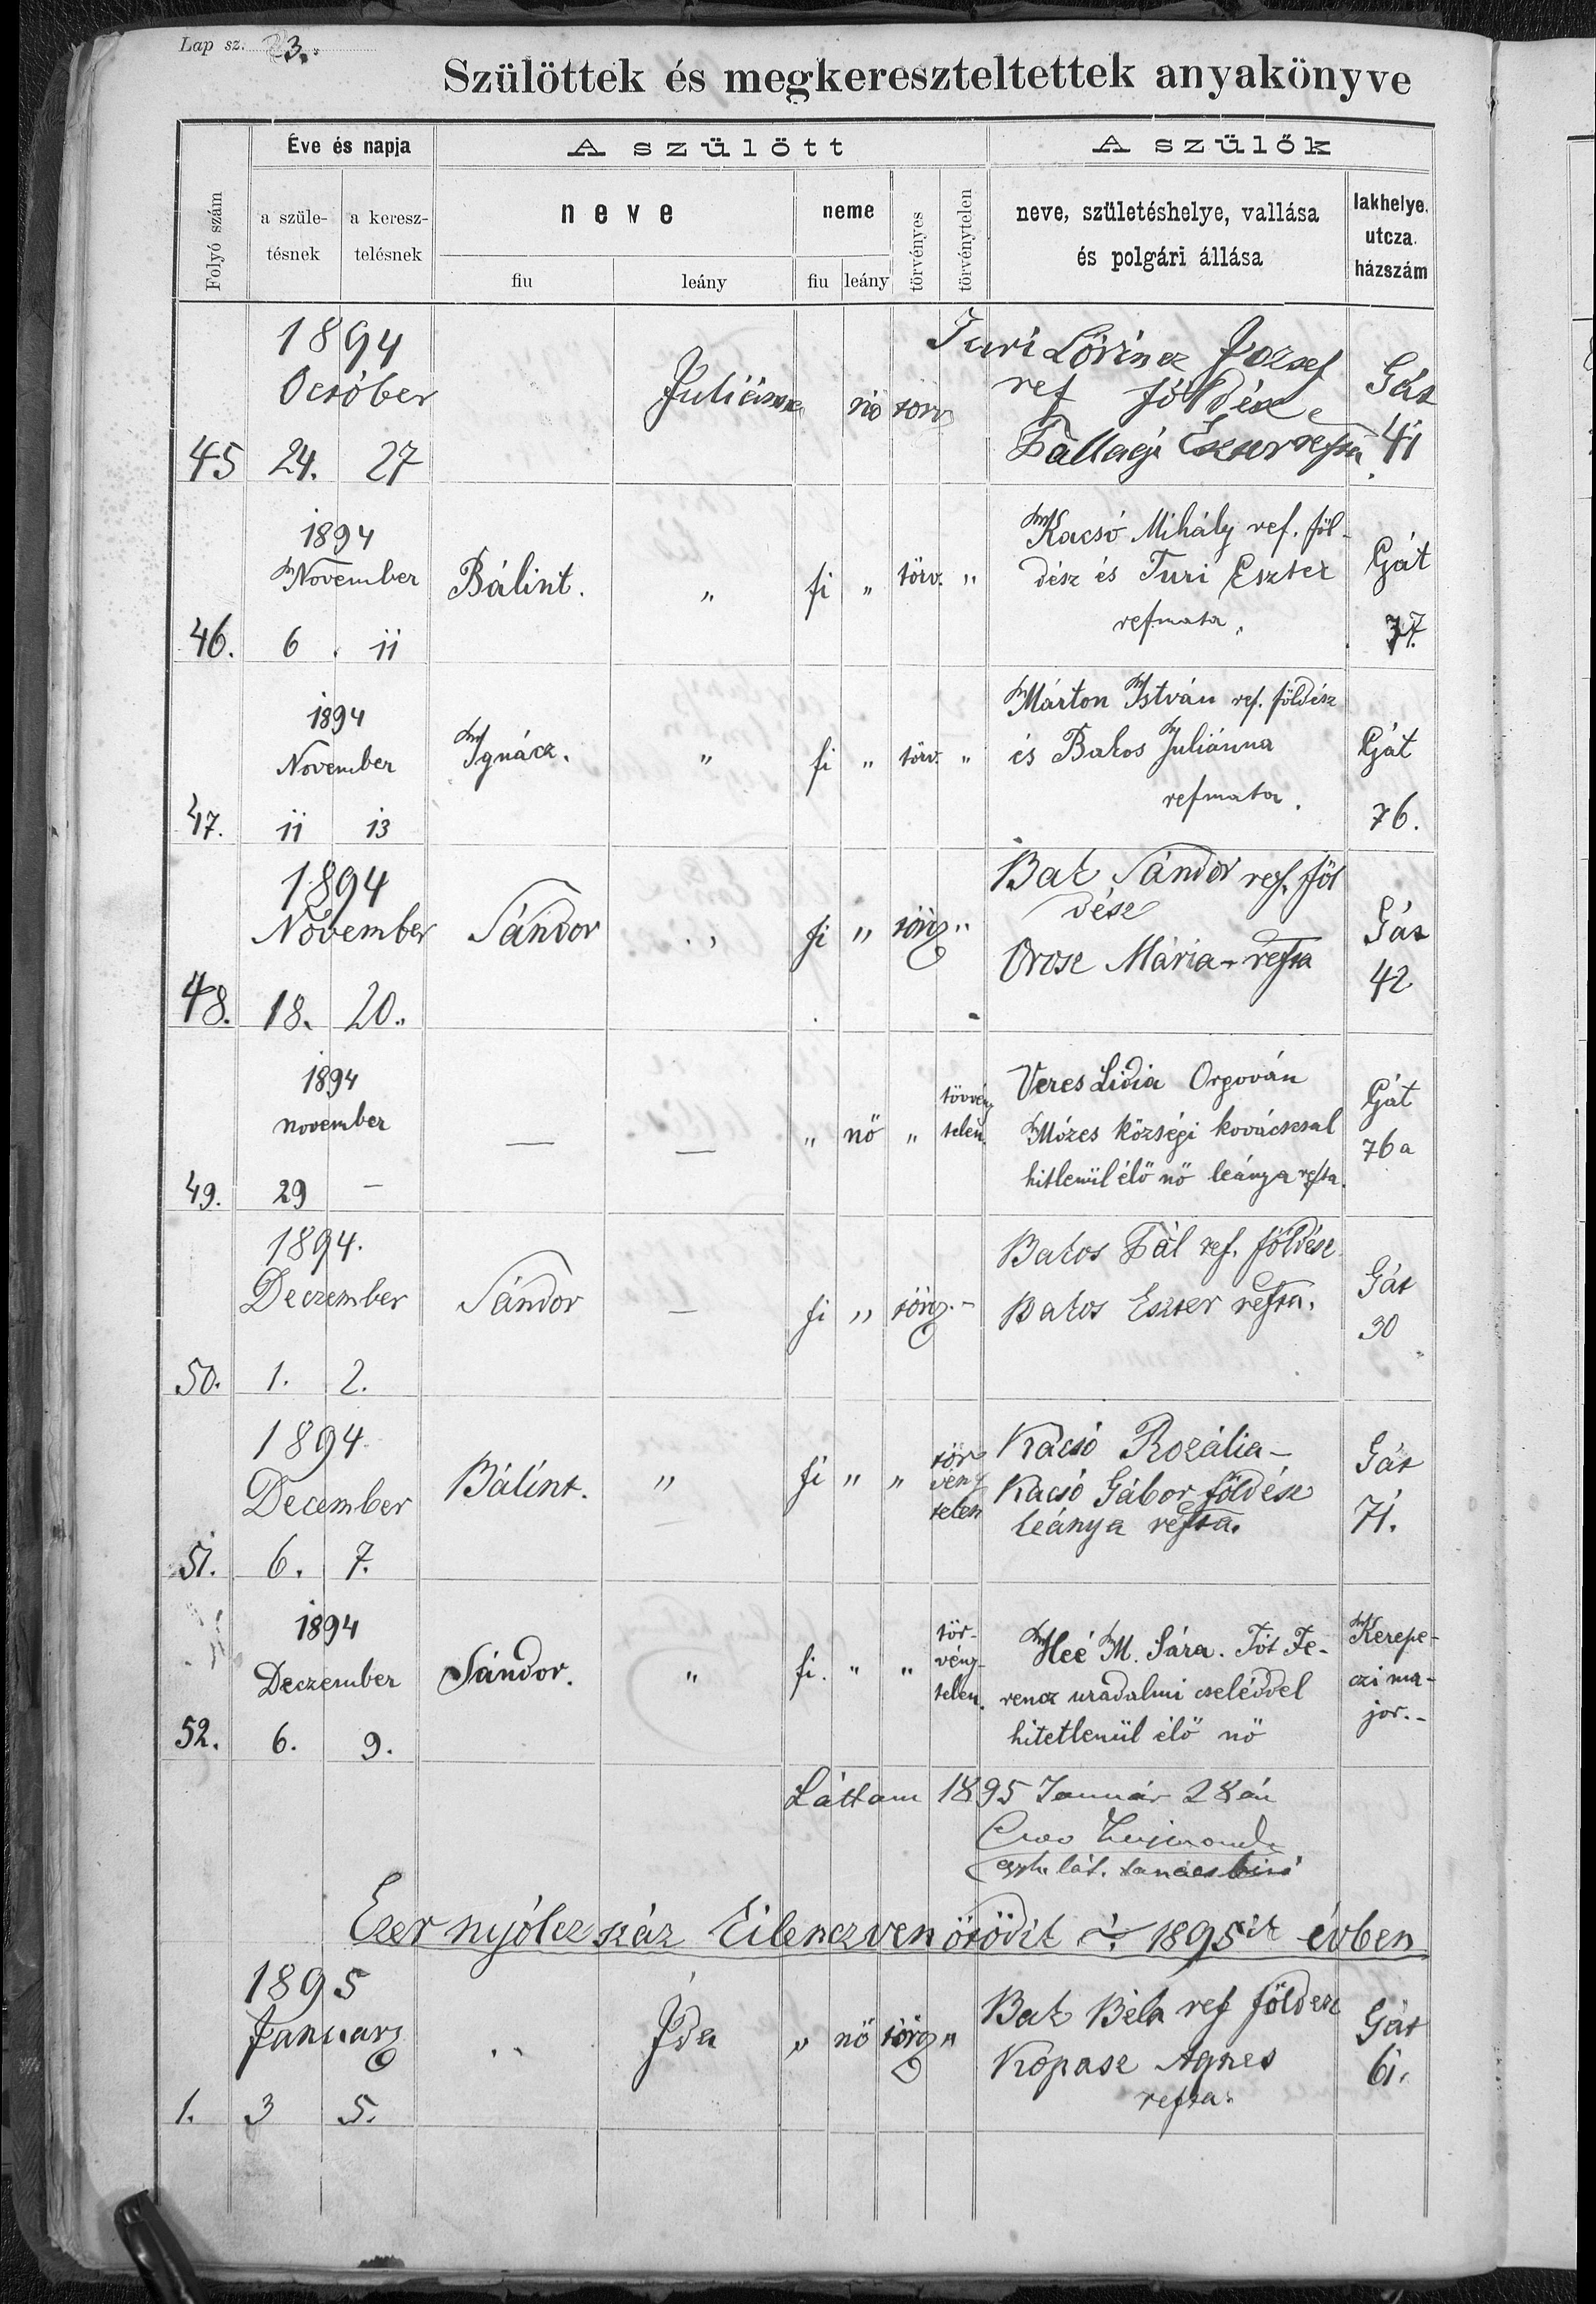 Lap sz. 23.
Szülöttek és megkereszteltettek anyakönyve
Folyó szám
Éve és napja
a születésnek
a keresztelésnek
A szülött
neve
fiu
leány
neme
fiu
leány
törvényes
törvénytelen
A szülők
neve, születéshelye, vallása
és polgári állása
lakhelye.
utcza.
házszám
1894
October
45 24. 27
Juliánna nő törv
Turi Lőrincz József
ref földész
Pallagi Eszter refta
Gát
41
1894
November
46. 6 11
Bálint. " fi " törv. "
Kacsó Mihály ref. föl-
dész és Turi Eszter
refmata.
Gát
77.
1894
November
47. 11 13
Ignácz. " fi " törv. "
Márton István ref. földész
és Bakos Juliánna
refmata.
Gát
76.
1894
November
48. 18. 20.
Sándor " fi " törv "
Bak Sándor ref. föl
dész
Orosz Mária - refta
Gát
42
1894
november
49. 29 -
— — " nő " törvény
telen.
Veres Lidia Orgován
Mózes községi kovácscsal
hitlenül élő nő leánya refta.
Gát
76a
1894.
Deczember
50. 1. 2.
Sándor — fi " törv. -
Bakos Pál ref. földész
Bakos Eszter refta.
Gát
30
1894.
December
51. 6. 7.
Bálint. " fi " " tör
vény
telen
Kacsó Rozália -
Kacsó Gábor földész
leánya refta.
Gát
71.
1894
Deczember
52. 6. 9.
Sándor. " fi. " " tör-
vény-
telen.
Heé M. Sára. Tót Fe-
rencz uradalmi cseléddel
hitetlenül élő nő
Kerepe-
czi ma-
jor.-
Láttam 1895 Január 28án
tanácsbiró
Ezer nyólcz száz Kilenczven ötödik 1895ik évben
1895
Január
1. 3 5.
" Ida " nő törv "
Bak Béla ref földesz
Kopasz Agnes
refta.
Gát
61.